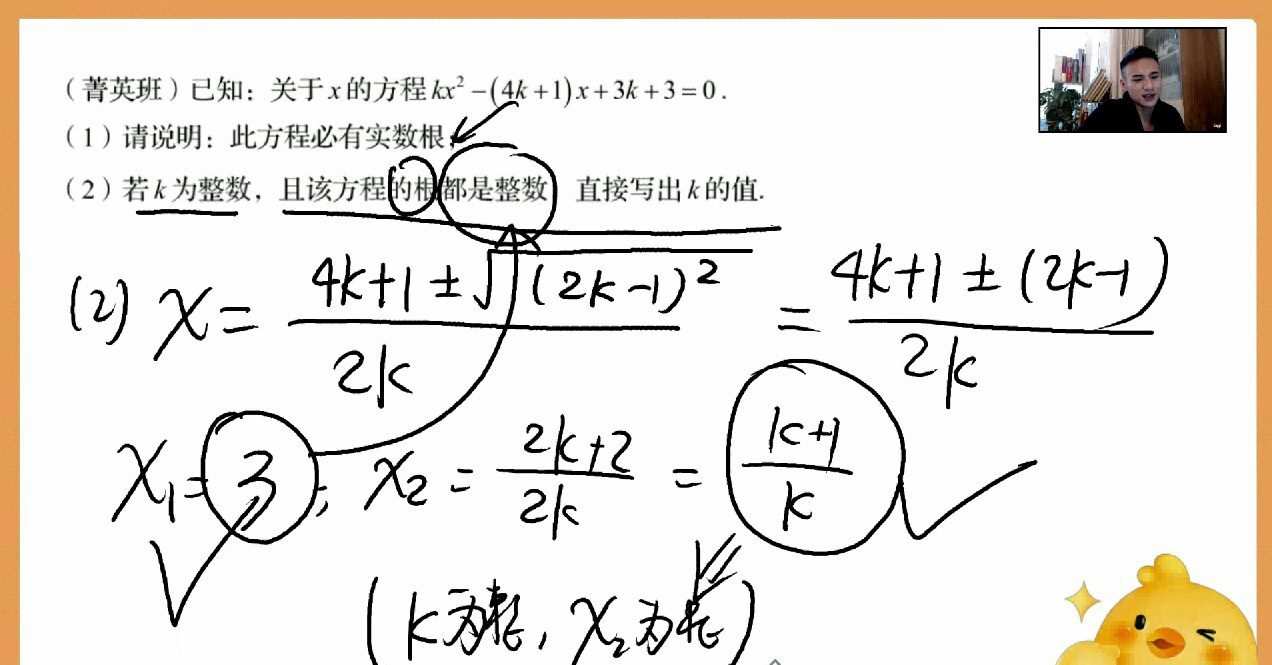 （菁英班）已知：关于x的方程kx²－(4k＋1)x＋3k＋3＝0．
（1）请说明：此方程必有实数根
（2）若k为整数，且该方程的根都是整数 直接写出k的值.
(2) x = (4k+1±√(2k-1)²)/(2k) = (4k+1±(2k-1))/(2k)
x₁=3; x₂ = (2k+2)/(2k) = (k+1)/k
(k为整, x₂为整)